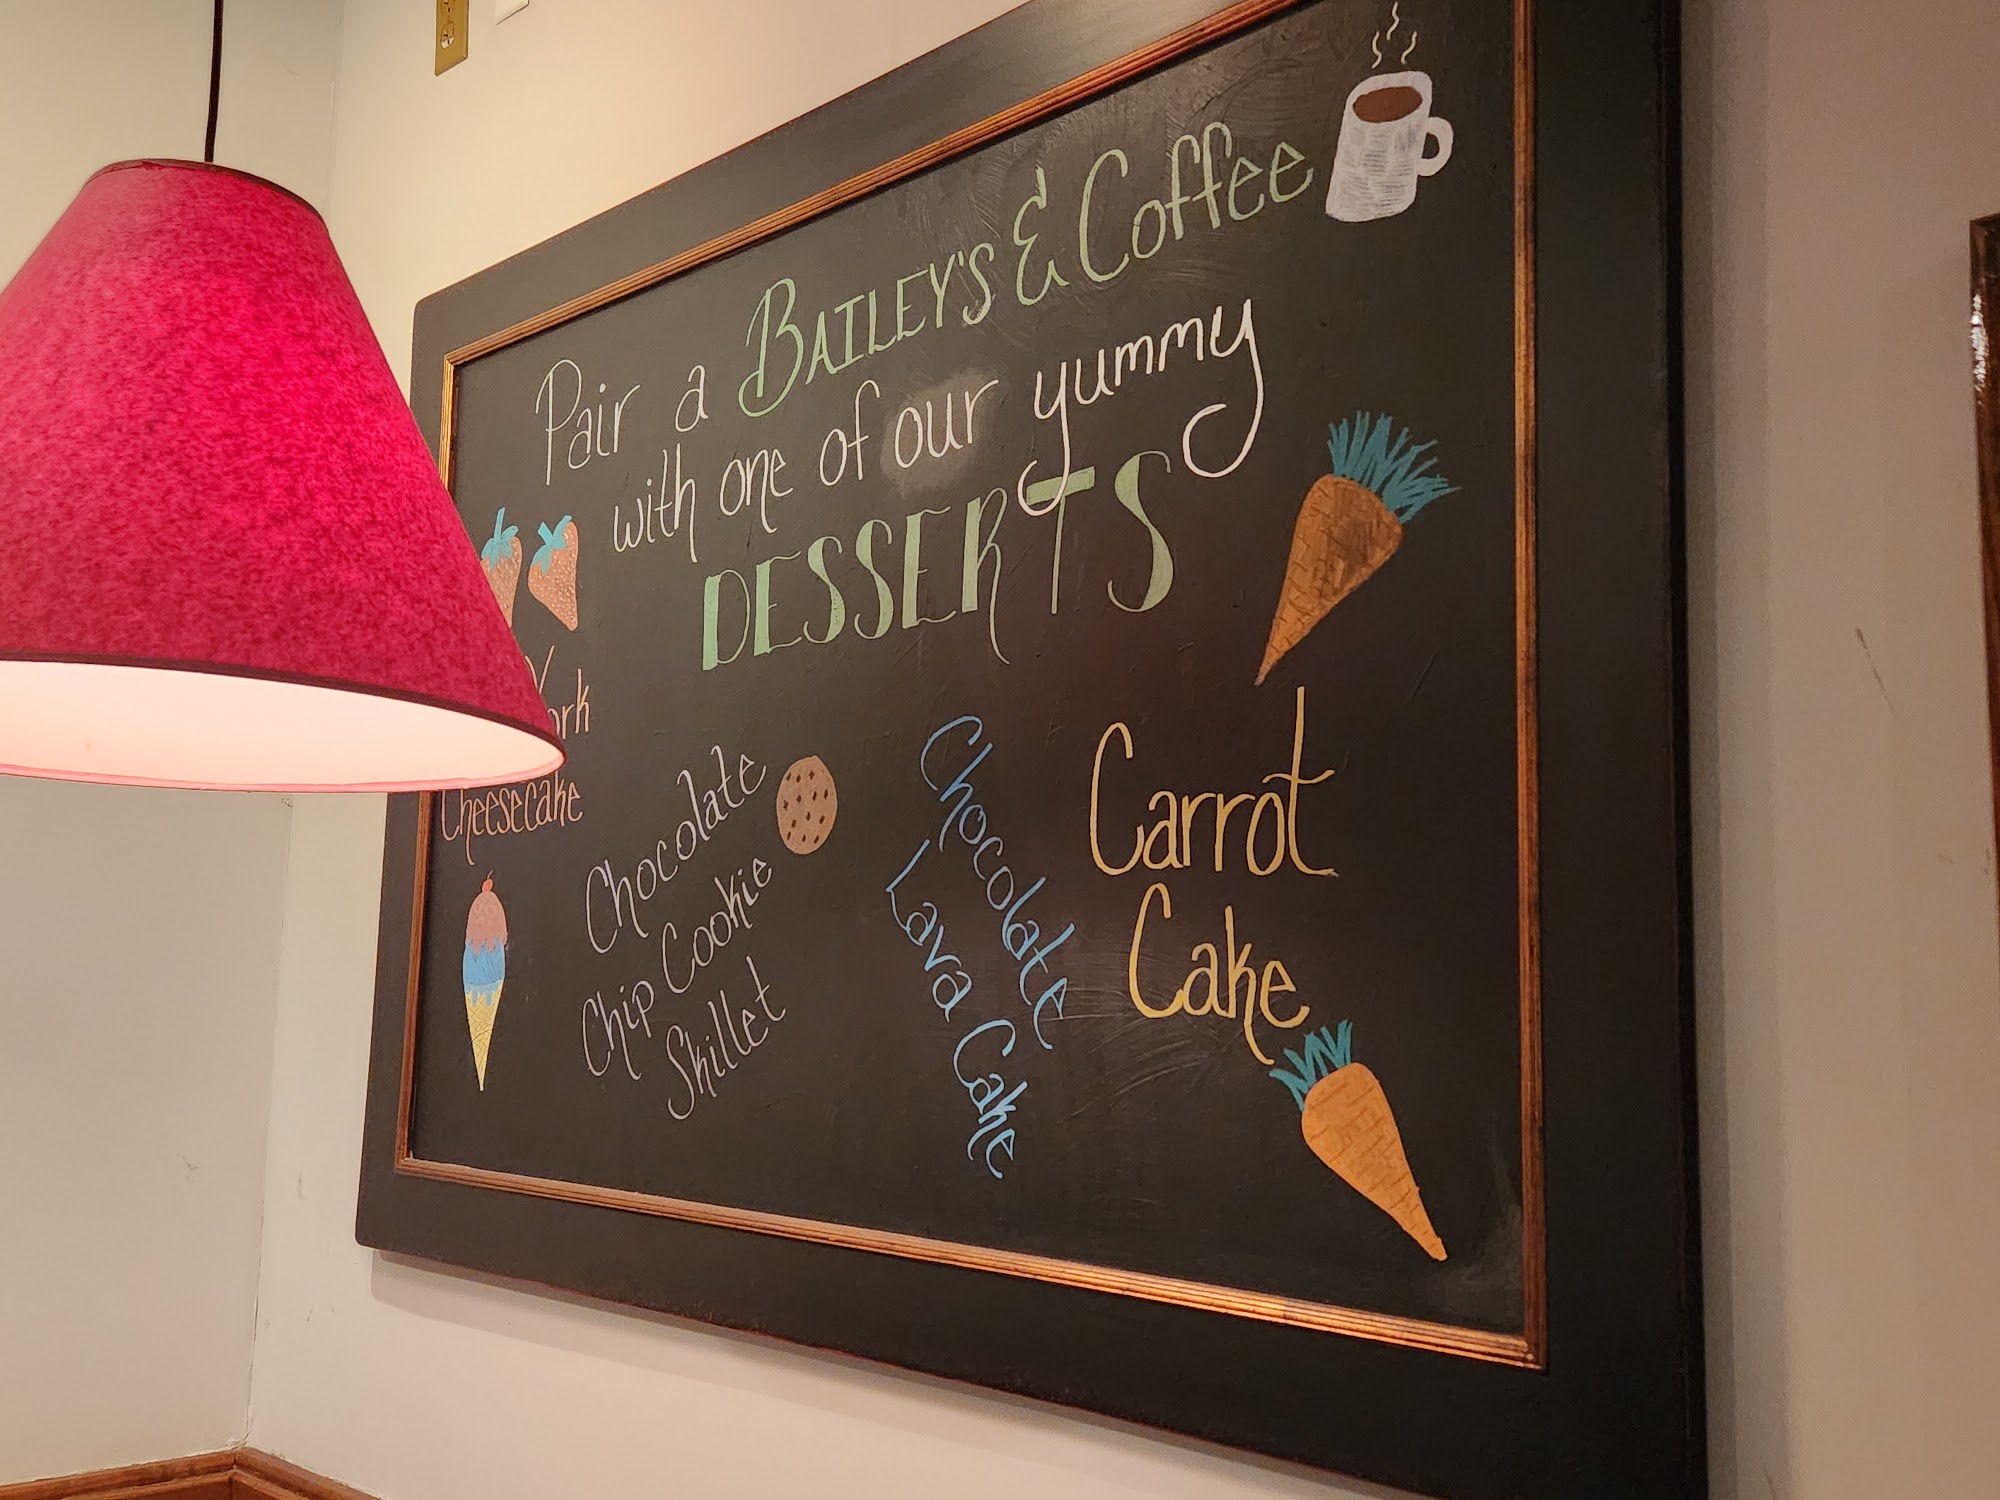 Pair a BAILEY'S & Coffee
with one of our yummy
DESSERTS
Cheesecake
Chocolate
Chip Cookie
Skillet
Chocolate
Lava Cake
Carrot
Cake